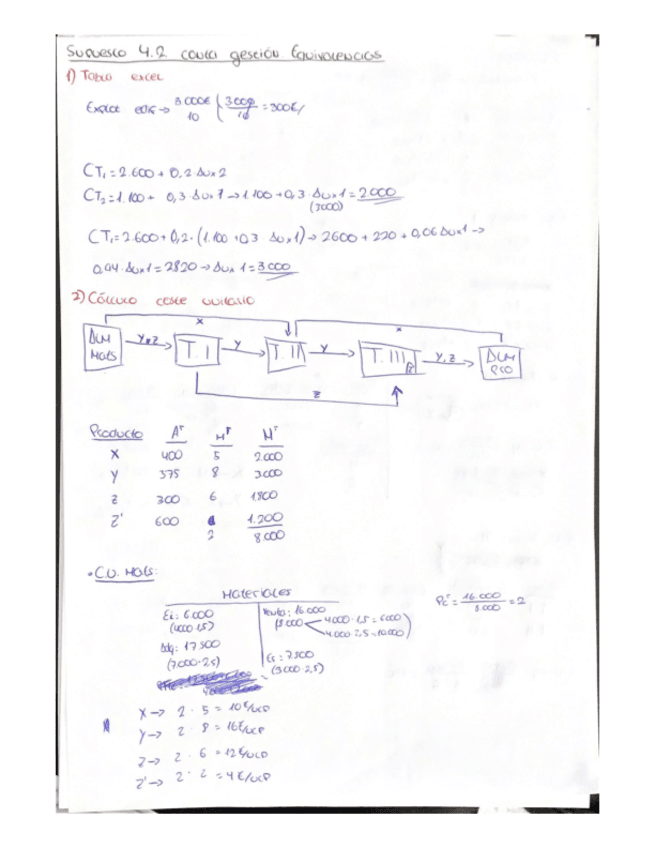 Supuesto 4.2 conta gestión Equivalencias
1) Tabla excel
Explot edif → 3000€/10 (3000/10 = 300€/
CT₁ = 2.600 + 0,2 Aux2
CT₂ = 1.100 + 0,3 · Aux 1 → 1.100 + 0,3 · Aux 1 = 2000
(3000)
CT₁ = 2.600 + 0,2 · (1.100 + 0,3 Aux1) → 2600 + 220 + 0,06 Aux1 →
0,94 · Aux1 = 2820 → Aux 1 = 3.000
2) Cálculo coste unitario
X X
ALM MATS Y,X,Z T. I Y T. II Y T. III Y, Z ALM PRO
Z
Producto Aʳ Mʳ Nʳ
X 400 5 2.000
Y 375 8 3.000
Z 300 6 1800
Z' 600 2 1.200
8.000
• C.U. Mats:
Materiales
Ei: 6.000 Venta: 16.000 Pcʳ = 16.000/8.000 = 2
(4000·1,5) (8.000 4.000 · 1,5 = 6000
Adq: 17.500 4.000 · 2,5 = 10.000)
(7.000 · 2,5) Es: 7.500
(3.000 · 2,5)
X → 2 · 5 = 10€/UCP
Y → 2 · 8 = 16€/UCP
Z → 2 · 6 = 12€/UCP
Z' → 2 · 2 = 4€/UCP